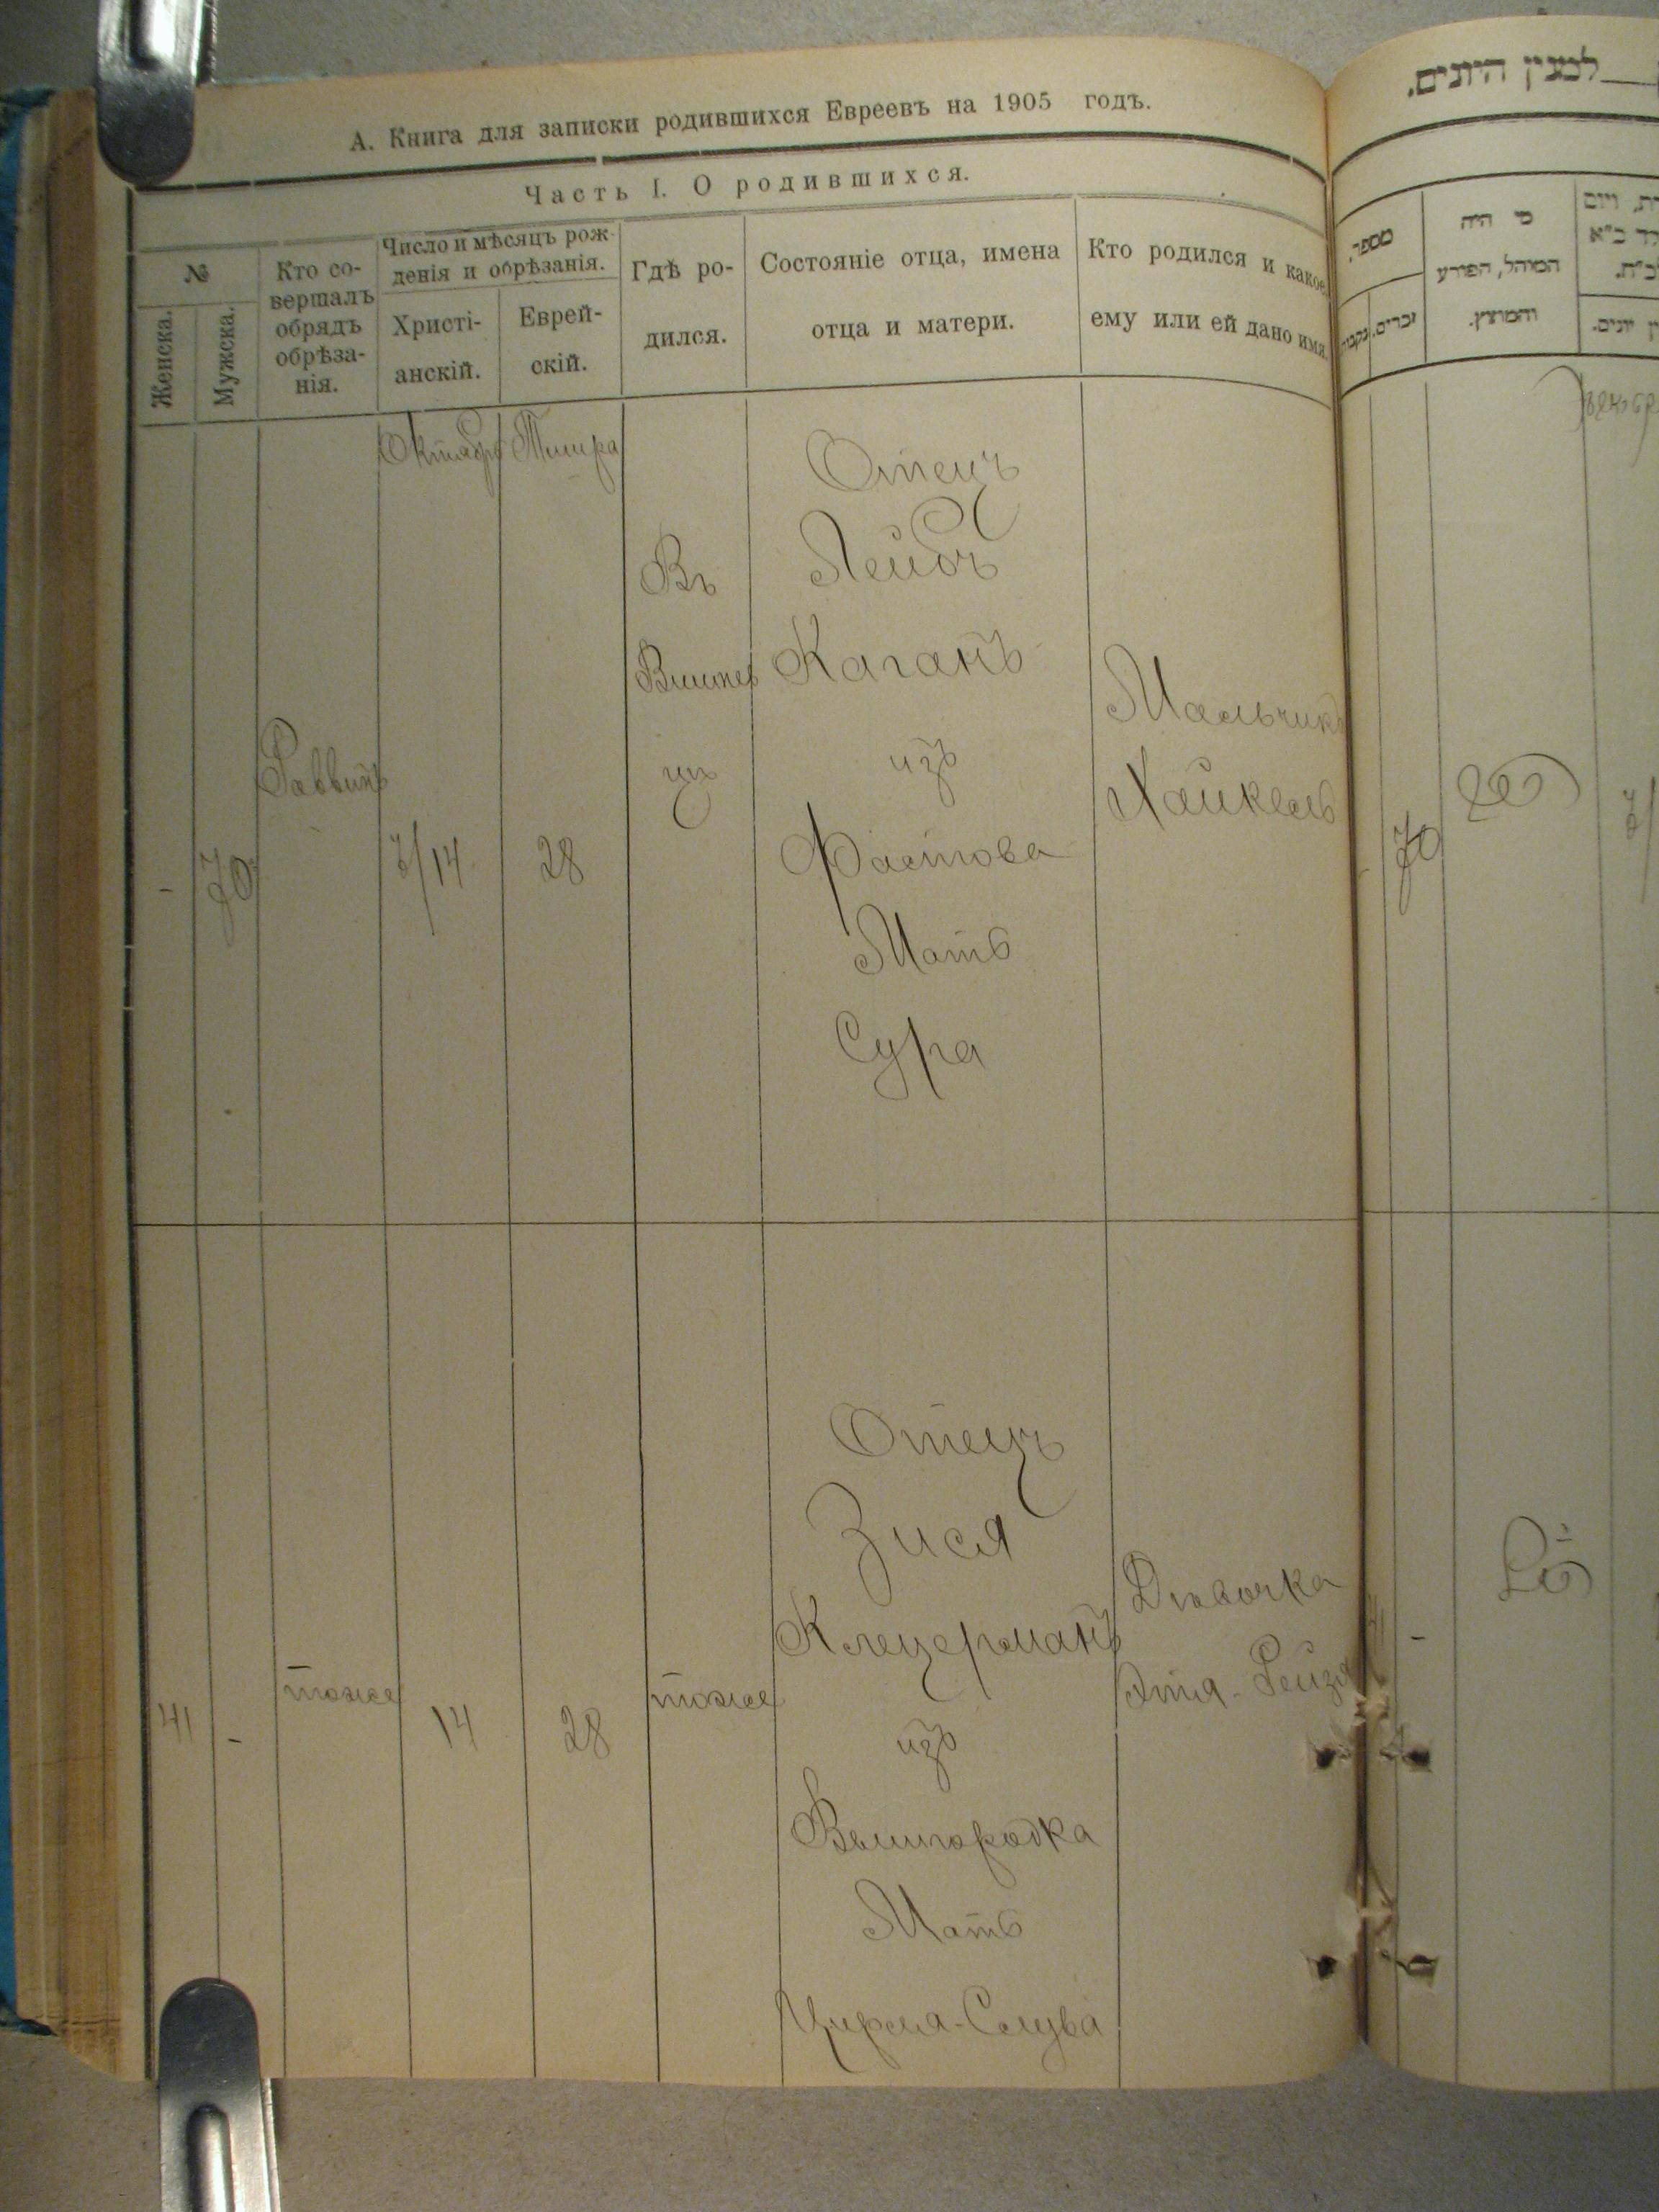 А. Книга для записки родившихся Евреевъ на 1905 годъ.
Часть I. О родившихся.
№
Женска.
Мужска.
Кто со-
вершалъ
обрядъ
обрѣза-
нія.
Число и мѣсяцъ рож-
денія и обрѣзанія.
Христі-
анскій.
Еврей-
скій.
Гдѣ ро-
дился.
Состояніе отца, имена
отца и матери.
Кто родился и какое
ему или ей дано имя.
Октябрь
-
70
Раввинъ
7/14
28
Въ
Отецъ
Лейбъ
Каганъ
изъ
Фастова
Мать
Сура
Мальчикъ
Хайкель
41
-
тоже
14
28
тоже
Отецъ
Зися
Клецерманъ
изъ
Вышгородка
Мать
Цирля-Слува
Дѣвочка
Этя-Рейзя
למנין היונים.
מספר.
זכרים.
מי היה
המוהל, הפורע
והמוצץ.
70
-